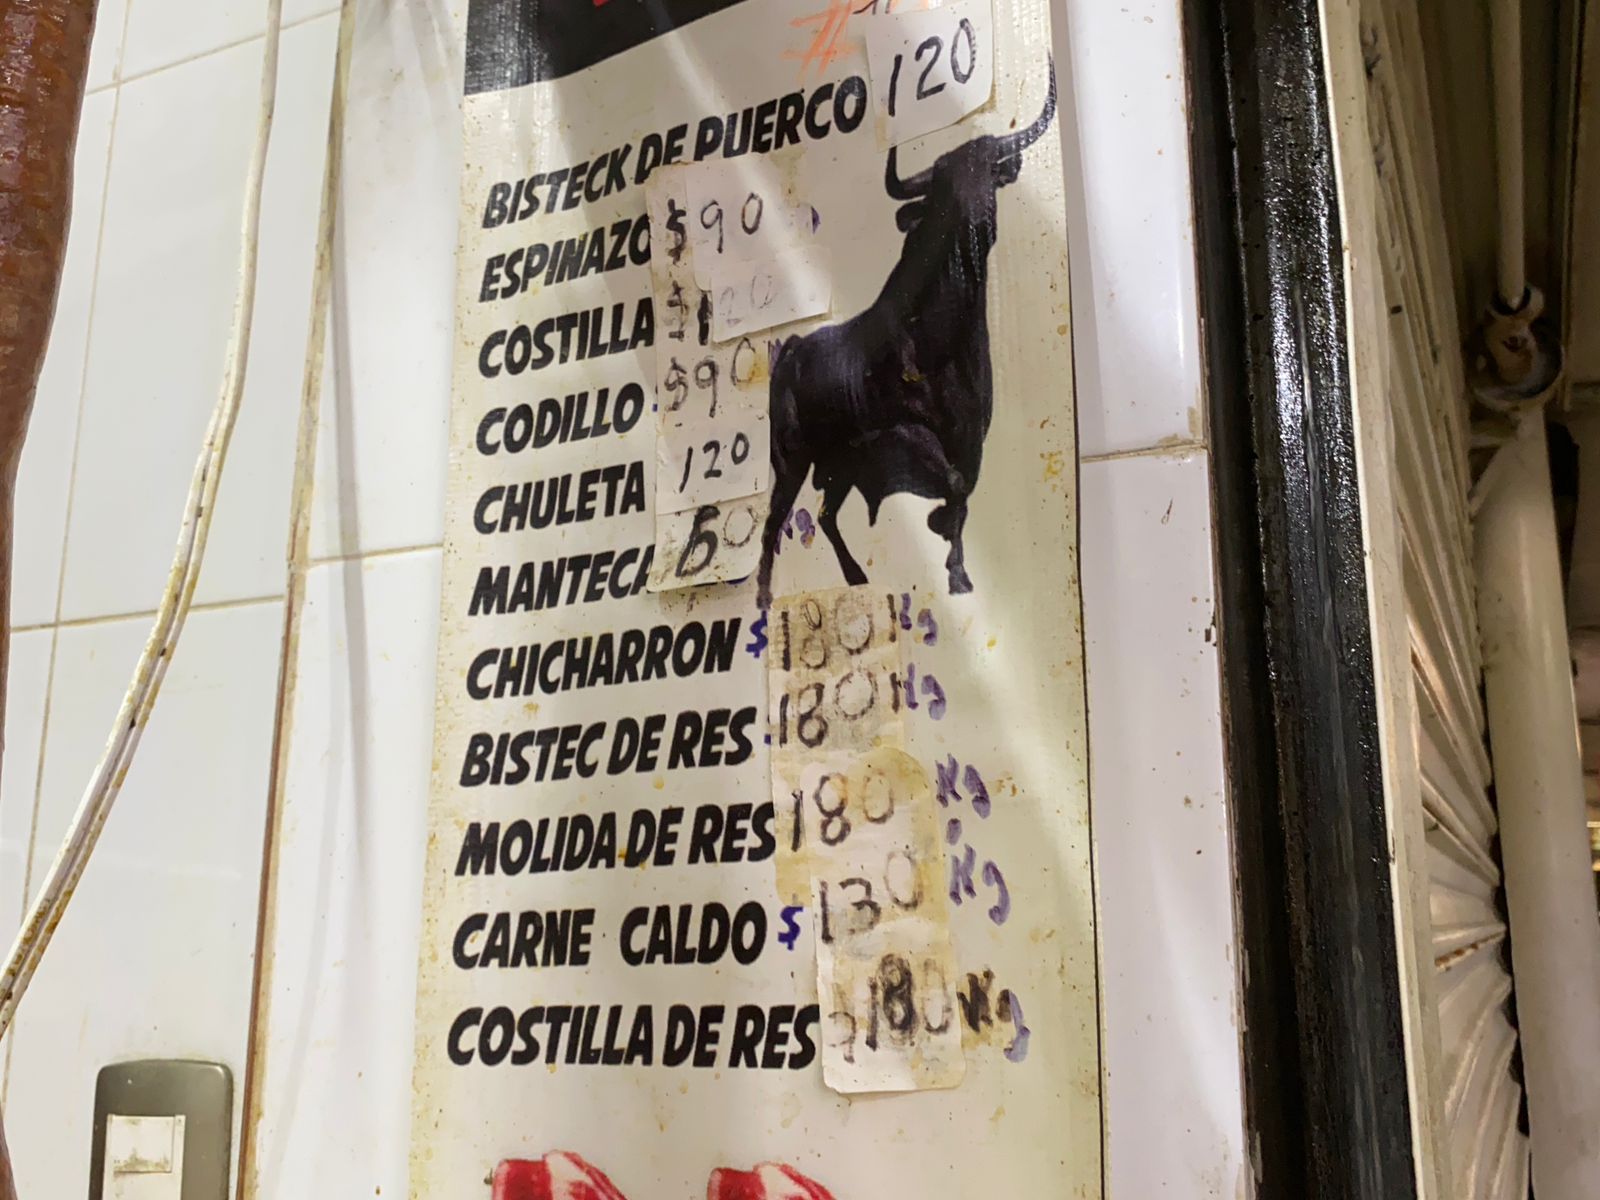 BISTECK DE PUERCO 120
ESPINAZO $90
COSTILLA $120
CODILLO $90
CHULETA 120
MANTECA 50 Kg
CHICHARRON $180 Kg
BISTEC DE RES 180 Kg
MOLIDA DE RES 180 Kg
CARNE CALDO $130 Kg
COSTILLA DE RES 180 Kg